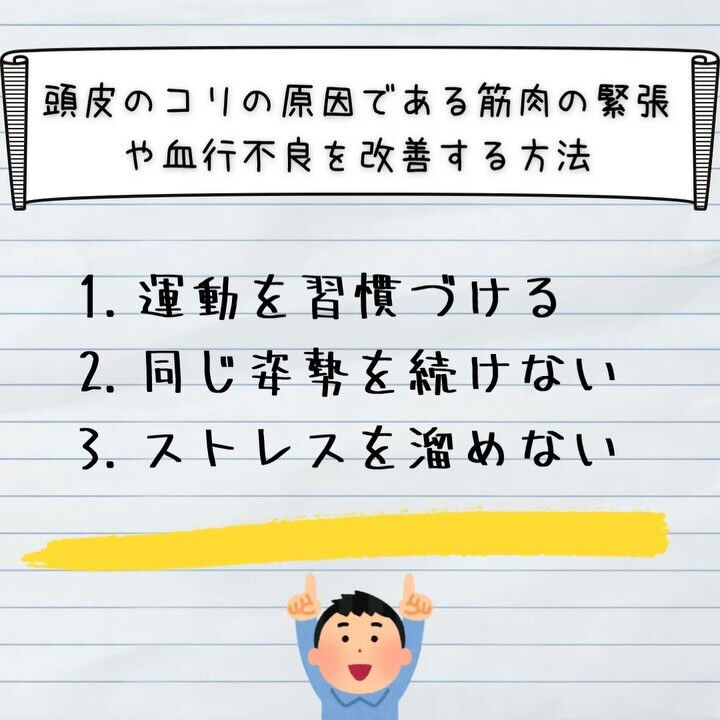 頭皮のコリの原因である筋肉の緊張
や血行不良を改善する方法
1. 運動を習慣づける
2. 同じ姿勢を続けない
3. ストレスを溜めない